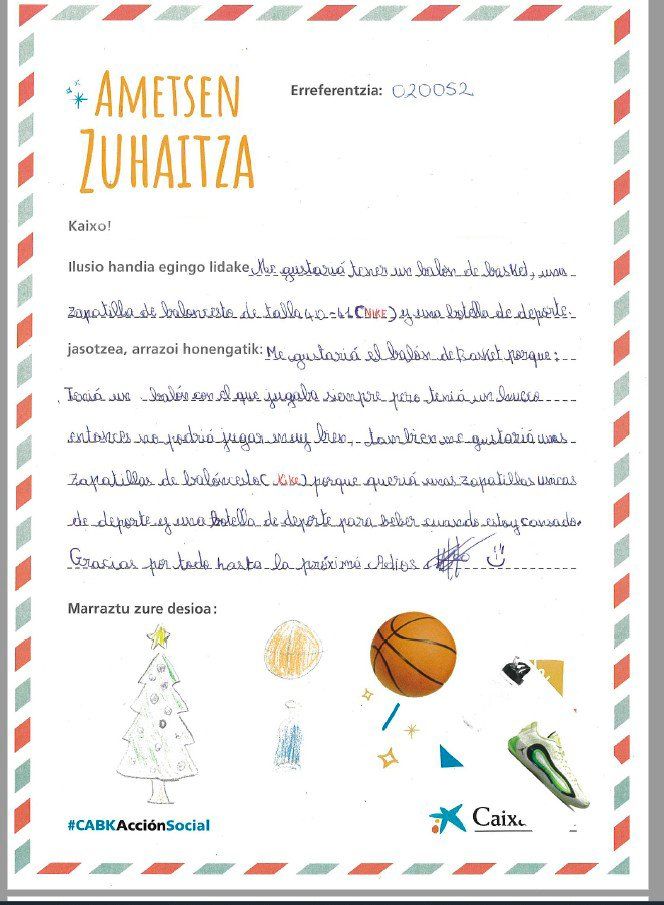 AMETSEN
ZUHAITZA
Erreferentzia: 020052
Kaixo!
Ilusio handia egingo lidake Me gustariá tener un balón de basket, una
zapatilla de baloncesto de talla 40-41 (NIKE) y una botella de deporte.
jasotzea, arrazoi honengatik: Me gustariá el balón de basket porque:
Teniá un balón con el que jugaba siempre pero teniá un hueco
entonces no podriá jugar muy bien. tambien me gustariá unas
zapatillas de balóncesto (Nike) porque queriá unas zapatillas unicas
de deporte y una botella de deporte para beber cuando estoy cansado.
Gracias por todo hasta la próxima Adios
Marraztu zure desioa:
#CABKAcciónSocial
Caixa